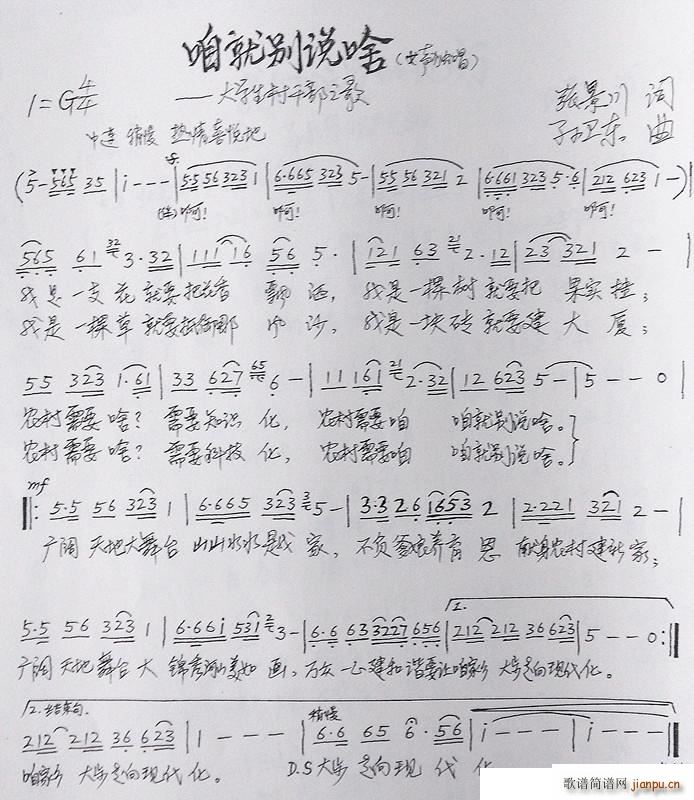 咱就别说啥(女声小合唱)
1=G 4/4 ——大学生村干部之歌 张景川 词
中速 稍慢 热情喜悦地 孙卫东 曲
(5- 565 35 | i - - - | 55 56 323 1 | 6·665 323 5- | 55 56 321 2 | 6·661 323 5·6 | 212 623 1 -)|
(伴)啊! 啊! 啊! 啊! 啊!
565 61 3·32 | 111 16 56 5· | 121 63 2·12 | 23 321 2 - |
我是一支花就要把花香 飘洒, 我是一棵树就要把 果实挂;
我是一棵草就要 那 沙, 我是一块砖就要建 大厦;
55 323 1·61 | 33 627 6 - | 11 161 2·32 | 12 623 5 - | 5 - - 0 |
农村需要啥? 需要知识 化, 农村需要咱 咱就别说啥。
农村需要啥? 需要科技 化, 农村需要咱 咱就别说啥。
mf
5·5 56 323 1 | 6·665 323 5 - | 3·3 26 1653 2 | 2·221 321 2 - |
广阔 天地大舞台 山山水水是我 家, 不负爹娘养育 恩 献身农村建新家;
5·5 56 323 1 | 6·66i 531 3 - | 6·6 63 3227 656 | 212 212 36 623 | 5 - - 0 :|
广阔 天地 舞台 大 锦秀河山美如 画, 万众 一心建和谐要让咱家乡 大步走向现代化。
2.结束句. 稍慢
212 212 36 623 | 1 - - - | 6·6 65 6·56 | i - - - | i - - - |
咱家乡 大步走向现 代 化。 D.S 大步 走向现 代 化
歌谱简谱网 jianpu.cn